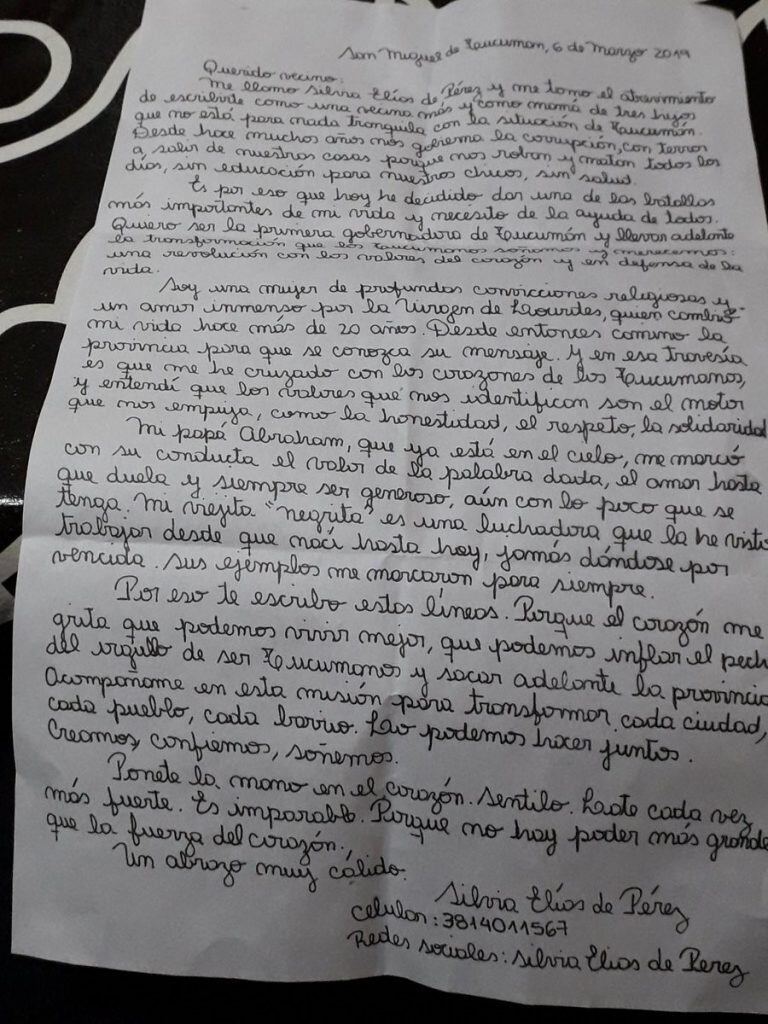 San Miguel de Tucumán, 6 de Marzo 2019
Querido vecino:
Me llamo Silvia Elías de Pérez y me tomo el atrevimiento
de escribirte como una vecina más y como mamá de tres hijos
que no está para nada tranquila con la situación de Tucumán.
Desde hace muchos años nos gobierna la corrupción, con terror
a salir de nuestras casas porque nos roban y matan todos los
días, sin educación para nuestros chicos, sin salud.
Es por eso que hoy he decidido dar una de las batallas
más importantes de mi vida y necesito de la ayuda de todos.
Quiero ser la primera gobernadora de Tucumán y llevar adelante
la transformación que los tucumanos soñamos y merecemos:
una revolución con los valores del corazón y en defensa de la
vida.
Soy una mujer de profundas convicciones religiosas y
un amor inmenso por la Virgen de Lourdes, quien cambió
mi vida hace más de 20 años. Desde entonces camino la
provincia para que se conozca su mensaje. Y en esa travesía
es que me he cruzado con los corazones de los Tucumanos,
y entendí que los valores que nos identifican son el motor
que nos empuja, como la honestidad, el respeto, la solidaridad
Mi papá Abraham, que ya está en el cielo, me marcó
con su conducta el valor de la palabra dada, el amar hasta
que duela y siempre ser generoso, aún con lo poco que se
tenga. Mi viejita "negrita" es una luchadora que la he visto
trabajar desde que nací hasta hoy, jamás dándose por
vencida. Sus ejemplos me marcaron para siempre.
Por eso te escribo estas líneas. Porque el corazón me
grita que podemos vivir mejor, que podemos inflar el pech
del orgullo de ser Tucumanos y sacar adelante la provincia
Acompañame en esta misión para transformar cada ciudad,
cada pueblo, cada barrio. Lao podemos hacer juntos.
Creamos, confiemos, soñemos.
Ponete la mano en el corazón. Sentilo. Late cada vez
más fuerte. Es imparable. Porque no hay poder más grande
que la fuerza del corazón.
Un abrazo muy cálido.
Silvia Elías de Pérez
celular: 3814011567
Redes sociales: Silvia Elias de Perez